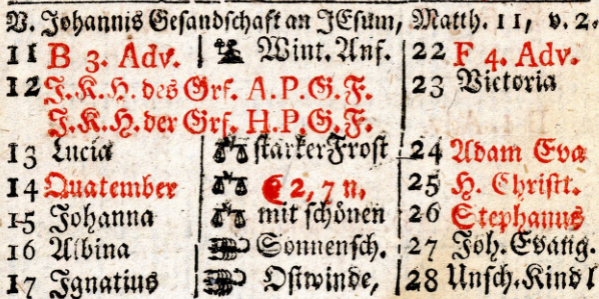 V. Johannis Gesandschaft an JEsum, Matth. 11, v. 2.
11 B 3. Adv. Wint. Anf. 22 F 4. Adv.
12 J. K. H. des Grf. A. P. G. F. 23 Victoria
J. K. H. der Grf. H. P. G. F.
13 Lucia starker Frost 24 Adam Eva
14 Quatember 2, 7 n. 25 H. Christt.
15 Johanna mit schönen 26 Stephanus
16 Albina Sonnensch. 27 Joh. Evang.
17 Ignatius Ostwinde, 28 Unsch. Kindl